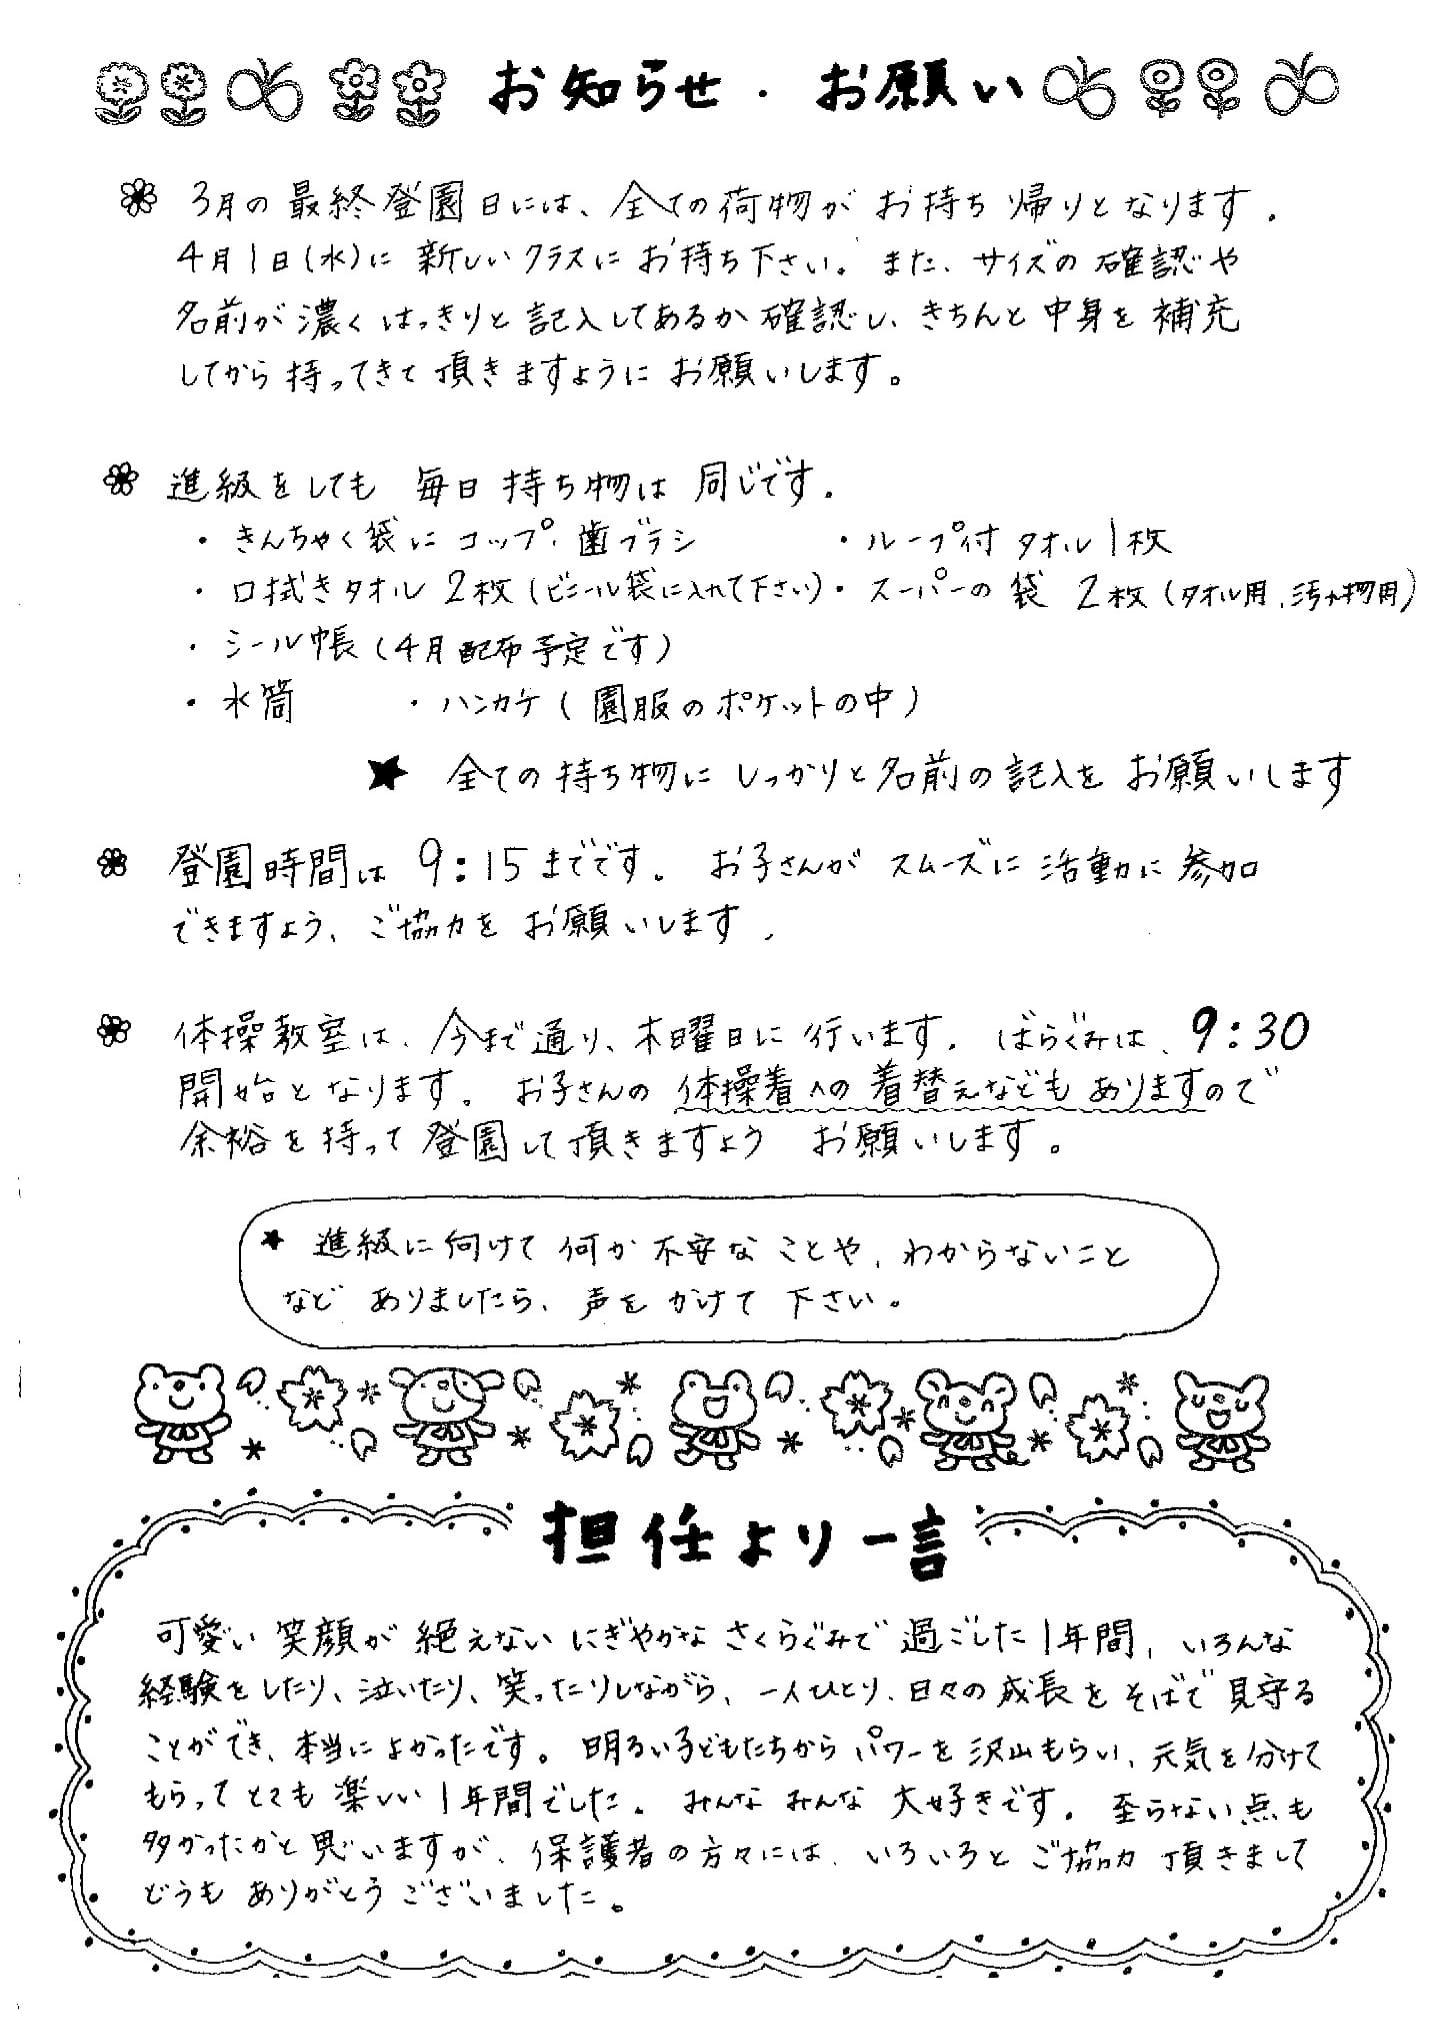 お知らせ・お願い
3月の最終登園日には、全ての荷物がお持ち帰りとなります。
4月1日(水)に新しいクラスにお持ち下さい。また、サイズの確認や
名前が濃くはっきりと記入してあるか確認し、きちんと中身を補充
してから持ってきて頂きますようにお願いします。
進級をしても毎日持ち物は同じです。
・きんちゃく袋にコップ・歯ブラシ ・ループ付タオル1枚
・口拭きタオル2枚(ビニール袋に入れて下さい)・スーパーの袋 2枚(タオル用、汚れ物用)
・シール帳(4月配布予定です)
・水筒 ・ハンカチ(園服のポケットの中)
★ 全ての持ち物にしっかりと名前の記入をお願いします
登園時間は9:15までです。お子さんがスムーズに活動に参加
できますよう、ご協力をお願いします。
体操教室は、今まで通り、木曜日に行います。ばらぐみは、9:30
開始となります。お子さんの体操着への着替えなどもありますので
余裕を持って登園して頂きますようお願いします。
★ 進級に向けて何か不安なことや、わからないこと
などありましたら、声をかけて下さい。
担任より一言
可愛い笑顔が絶えないにぎやかなさくらぐみで過ごした1年間、いろんな
経験をしたり、泣いたり、笑ったりしながら、一人ひとり、日々の成長をそばで見守る
ことができ、本当によかったです。明るい子どもたちからパワーを沢山もらい、元気を分けて
もらってとても楽しい1年間でした。みんなみんな大好きです。至らない点も
多かったかと思いますが、保護者の方々には、いろいろとご協力頂きまして
どうもありがとうございました。